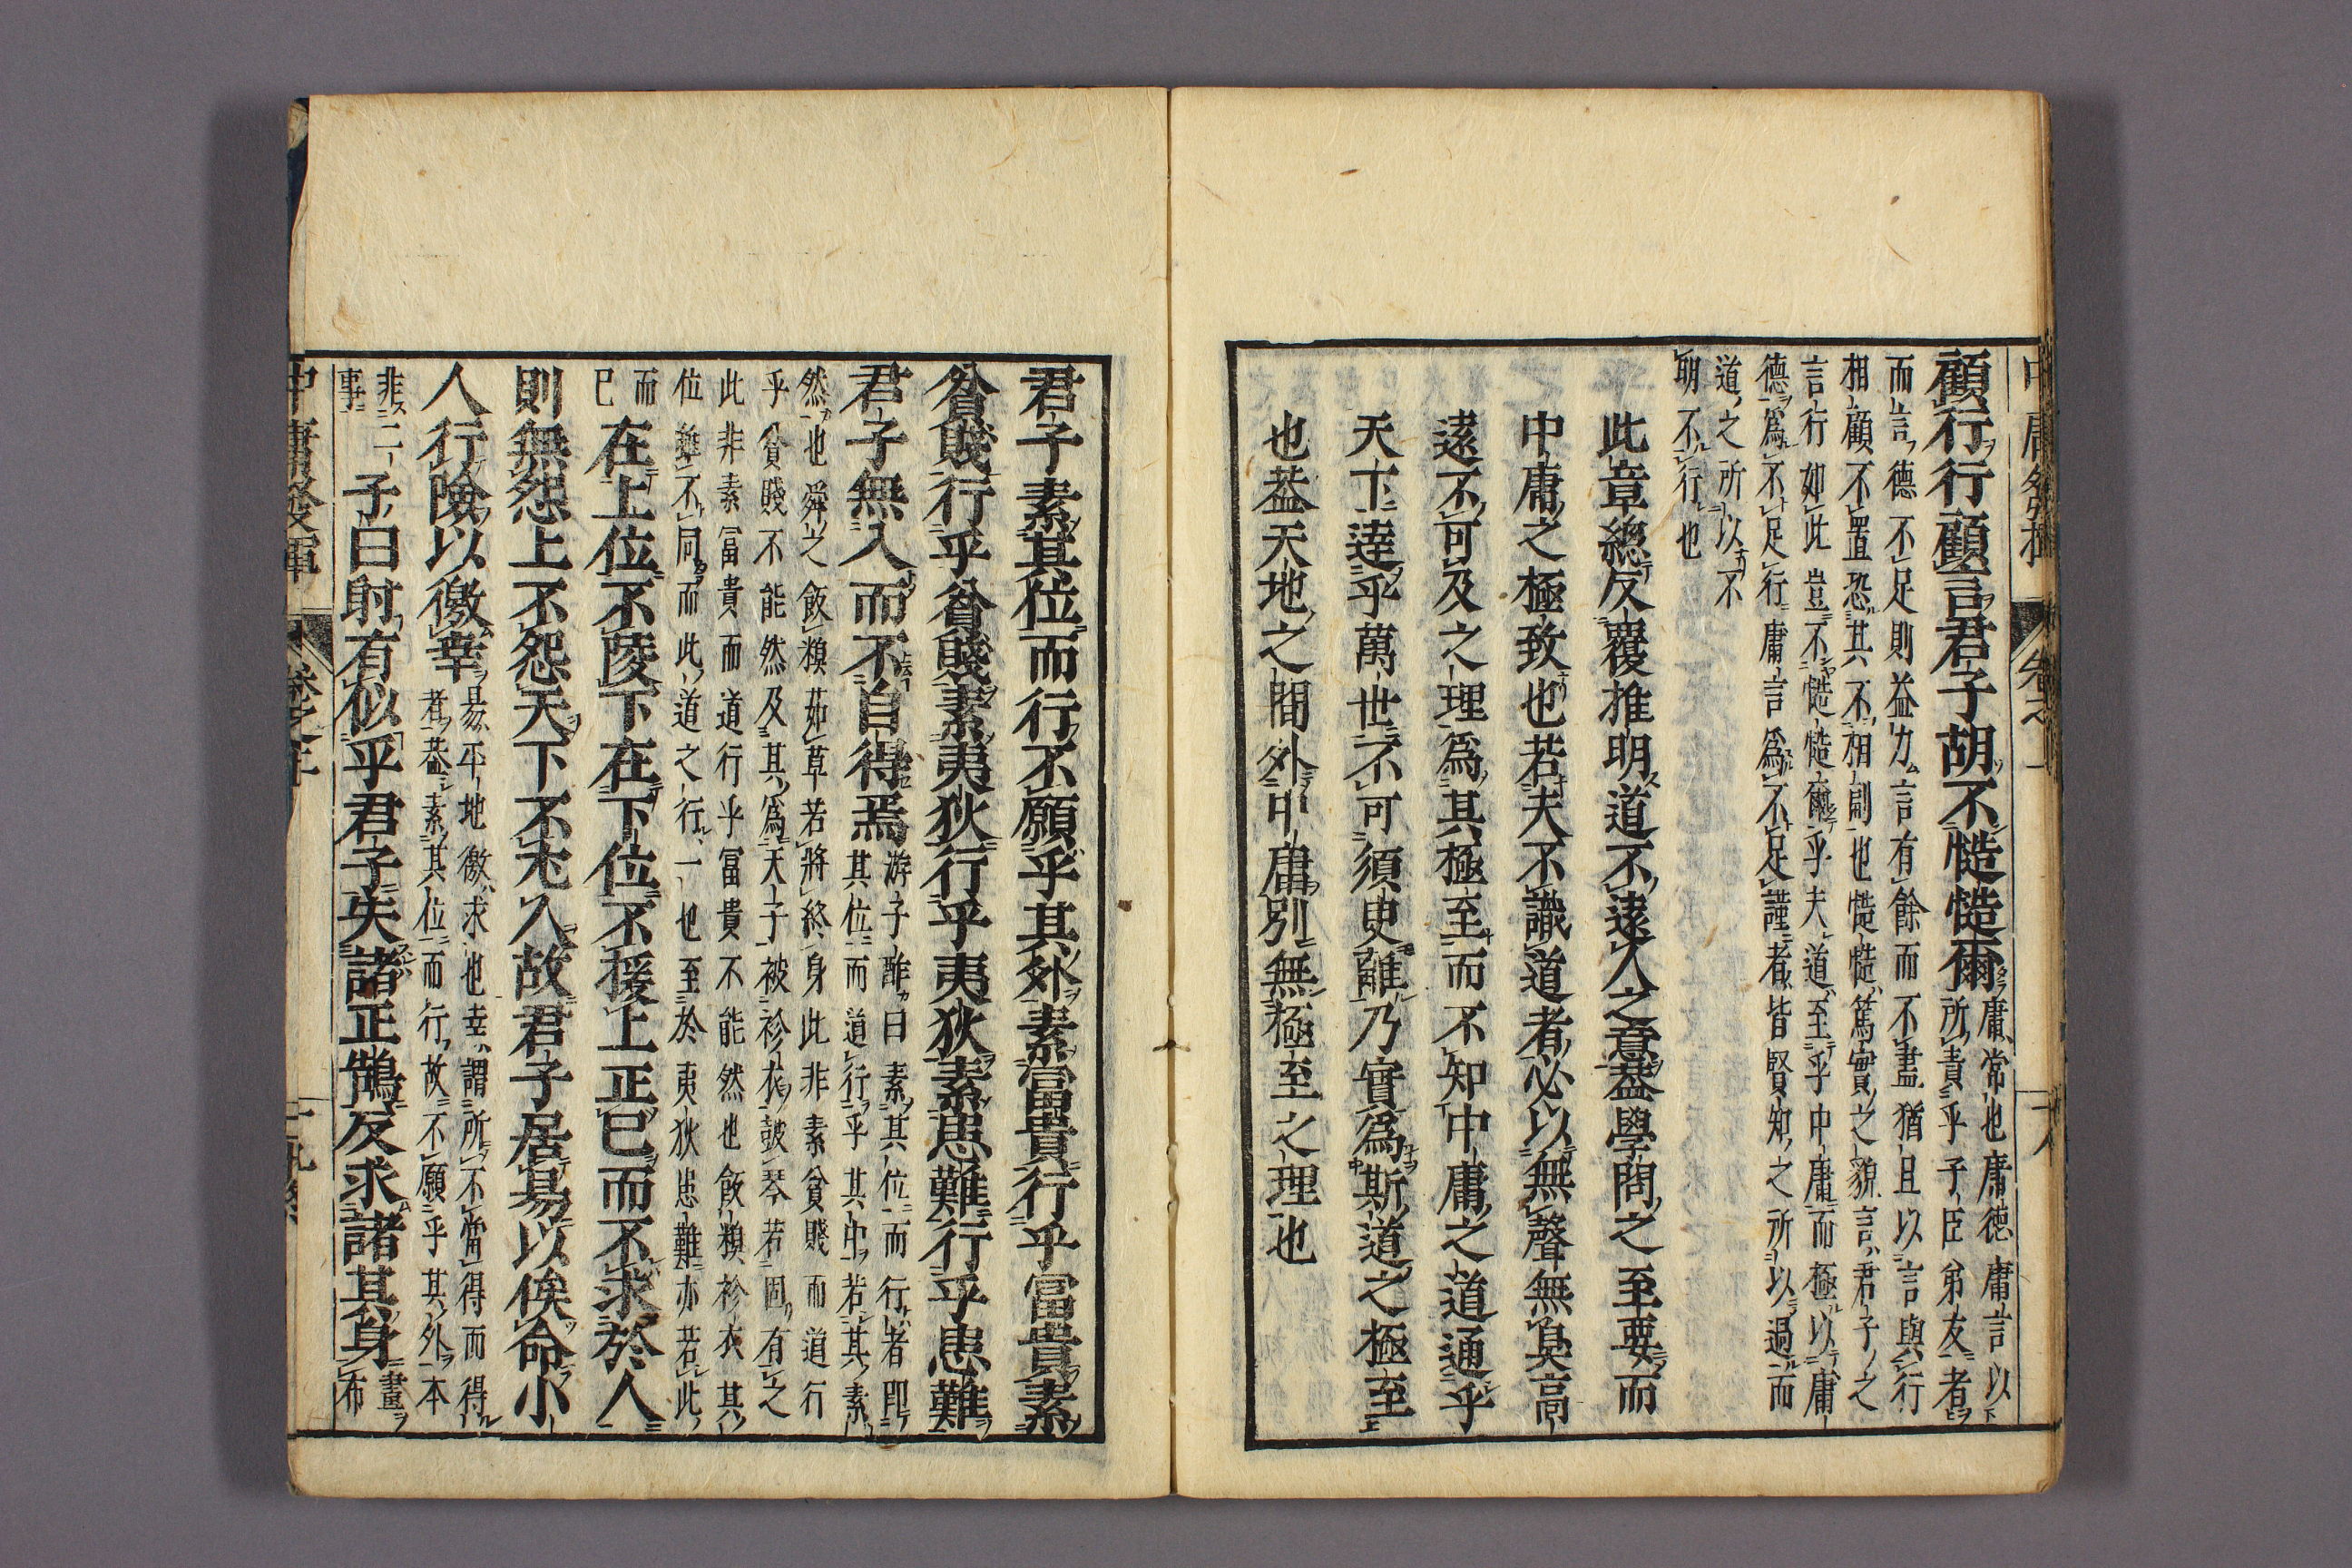 顧行行顧言君子胡不慥慥爾庸常也庸德庸言以
所責乎子臣弟友者
而言德不足則益力言有餘而不盡猶且以言與行
相顧不置恐其不相副也慥慥篤實之貌言君子之
言行如此豈不慥慥爾乎夫道至乎中庸而極以庸
德爲不足行庸言爲不足謹者皆賢知之所以過而
道之所以不
明不行也
此章總反覆推明道不遠人之意葢學問之至要而
中庸之極致也若夫不識道者必以無聲無臭高
遠不可及之理爲其極至而不知中庸之道通乎
天下達乎萬世不可須臾離乃實爲斯道之極至
也葢天地之間外中庸別無極至之理也
君子素其位而行不願乎其外素富貴行乎富貴素
貧賤行乎貧賤素夷狄行乎夷狄素患難行乎患難
君子無入而不自得焉游子酢曰素其位而行者即
其位而道行乎其中若其素
然也舜之飯糗茹草若將終身此非素貧賤而道行
乎貧賤不能然及其爲天子被袗衣鼓琴若固有之
此非素富貴而道行乎富貴不能然也飯糗袗衣其
位雖不同而此道之行一也至於夷狄患難亦若此
而
已
在上位不陵下在下位不援上正已而不求於人
則無怨上不怨天下不尤人故君子居易以俟命小
人行險以徼幸易平地徼求也幸謂所不當得而得
者葢素其位而行故不願乎其外本
非二
事
子曰射有似乎君子失諸正鵠反求諸其身畫
布
中庸發揮